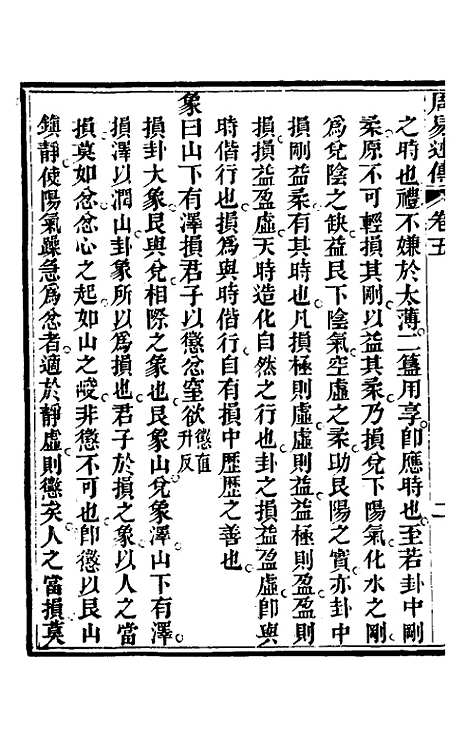 周易述傳 卷五 二
之時也禮不嫌於太薄二簋用享即應時也至若卦中剛
柔原不可輕損其剛以益其柔乃損兌下陽氣化水之剛
為兌陰之缺益艮下陰氣空虛之柔助艮陽之實亦卦中
損剛益柔有其時也凡損極則虛虛則益益極則盈盈則
損損益盈虛天時造化自然之行也卦之損益盈虛即與
時偕行也損為與時偕行自有損中歷歷之善也
象曰山下有澤損君子以懲忿窒欲懲直升反
損卦大象艮與兌相際之象也艮象山兌象澤山下有澤
損澤以潤山卦象所以為損也君子於損之象以人之當
損莫如忿忿心之起如山之峻非懲不可也即懲以艮山
鎮靜使陽氣躁急為忿者適於靜虛則懲矣人之當損莫